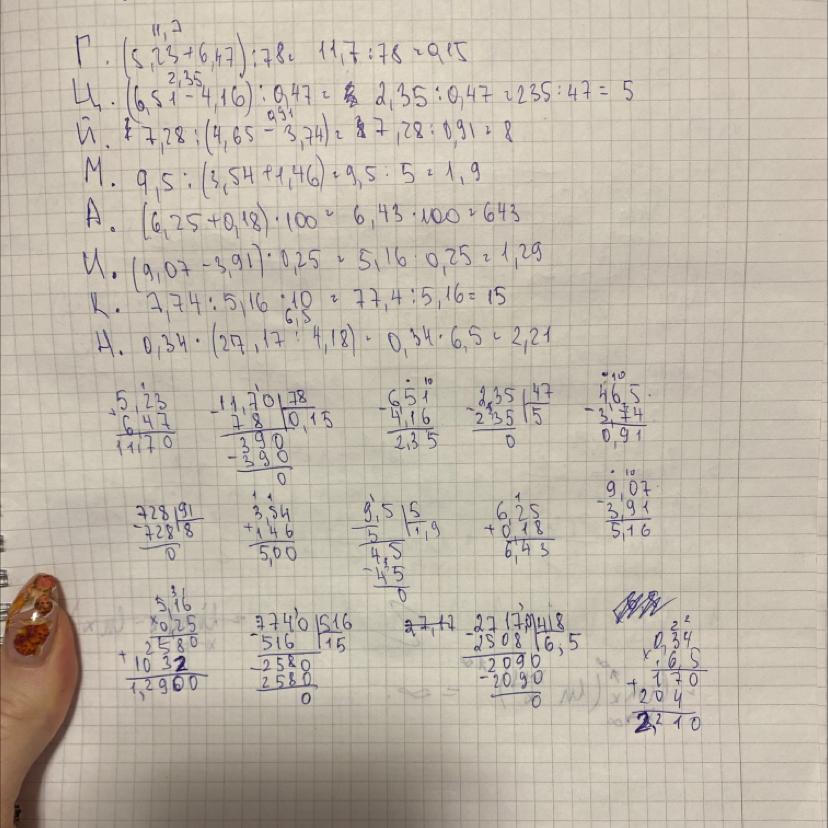 11,7
Г. (5,23+6,47):78= 11,7:78=0,15
2,35
Ц. (6,51-4,16):0,47= 2,35:0,47=235:47= 5
0,91
Й. 7,28:(4,65-3,74)= 7,28:0,91=8
М. 9,5:(3,54+1,46)=9,5:5=1,9
А. (6,25+0,18)·100= 6,43·100=643
И. (9,07-3,91)·0,25= 5,16·0,25=1,29
К. 7,74:5,16·10= 77,4:5,16=15
6,5
Н. 0,34·(27,17:4,18)= 0,34·6,5=2,21
5,23 11,70 78 651 2,35 47 4,65
+6,47 -78 0,15 -4,16 -235 5 -3,74
11,70 390 2,35 0 0,91
-390
0
728 91 3,54 9,5 5 6,25 9,07
-728 8 +1,46 -5 1,9 +0,18 -3,91
0 5,00 4,5 6,43 5,16
-45
0
5,16 7740 516 27,17 2717 418 0,34
×0,25 -516 15 -2508 6,5 ×6,5
2580 -2580 2090 170
+1032 2580 -2090 +204
1,2900 0 0 2,210